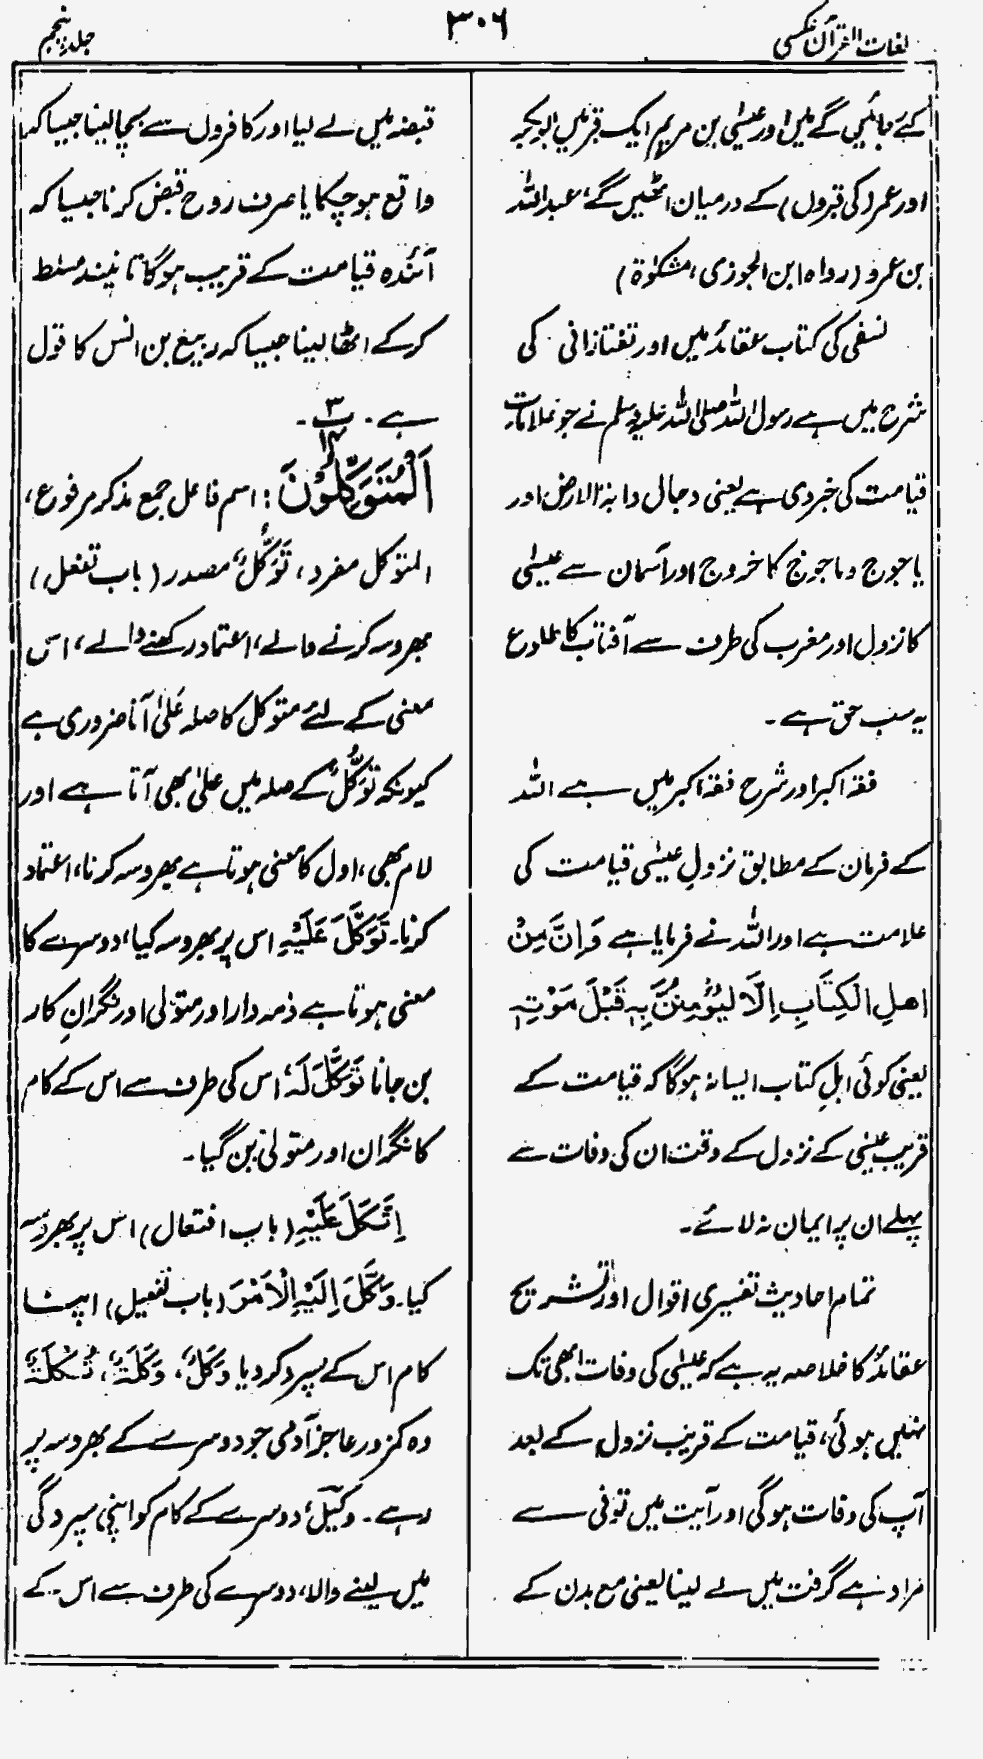 لغات القرآن عکسی
۳۰۶
جلد پنجم
کئے جائیں گے میں اور عیسیٰ بن مریم ایک قبر میں ابوبکر
اور عمر (کی قبروں) کے درمیان اٹھیں گے، عبداللہ
بن عمرو (رواہ ابن الجوزی، مشکوٰۃ)
نسفی کی کتاب عقائد میں اور تفتازانی کی
شرح میں ہے رسول اللہ صلی اللہ علیہ وسلم نے جو علامات
قیامت کی خبر دی ہے یعنی دجال دابۃ الارض اور
یاجوج وماجوج کا خروج اور آسمان سے عیسیٰ
کا نزول اور مغرب کی طرف سے آفتاب کا طلوع
یہ سب حق ہے۔
فقہ اکبر اور شرح فقہ اکبر میں ہے اللہ
کے فرمان کے مطابق نزولِ عیسیٰ قیامت کی
علامت ہے اور اللہ نے فرمایا ہے وَاِنَّ مِنْ
اھلِ الکِتَابِ اِلَّا لَیُؤْمِنَنَّ بِہٖ قَبْلَ مَوْتِہٖ
یعنی کوئی اہلِ کتاب ایسا نہ ہوگا کہ قیامت کے
قریب عیسیٰ کے نزول کے وقت ان کی وفات سے
پہلے ان پر ایمان نہ لائے۔
تمام احادیث تفسیری اقوال اور تشریح
عقائد کا خلاصہ یہ ہے کہ عیسیٰ کی وفات ابھی تک
نہیں ہوئی، قیامت کے قریب نزول کے بعد
آپ کی وفات ہوگی اور آیت میں توفی سے
مراد ہے گرفت میں لے لینا یعنی مع بدن کے
قبضہ میں لے لیا اور کافروں سے بچا لینا جیسا کہ
واقع ہو چکا یا صرف روح قبض کرنا جیسا کہ
آئندہ قیامت کے قریب ہوگا یا نیند مسلط
کرکے اٹھا لینا جیسا کہ ربیع بن انس کا قول
ہے۔ پ ۳ ۱۴۔
اَلْمُتَوَکِّلُوْنَ : اسم فاعل جمع مذکر مرفوع،
المتوکل مفرد، تَوَکُّلٌ مصدر (باب تفعل)
بھروسہ کرنے والے، اعتماد رکھنے والے، اس
معنی کے لئے متوکل کا صلہ عَلیٰ آنا ضروری ہے
کیونکہ تَوَکُّلٌ کے صلہ میں علیٰ بھی آتا ہے اور
لام بھی، اول کا معنی ہوتا ہے بھروسہ کرنا، اعتماد
کرنا۔ تَوَکَّلَ عَلَیْہِ اس پر بھروسہ کیا، دوسرے کا
معنی ہوتا ہے ذمہ دار اور متولی اور نگرانِ کار
بن جانا تَوَکَّلَ لَہٗ اس کی طرف سے اس کے کام
کا نگران اور متولی بن گیا۔
اِتَّکَلَ عَلَیْہِ (باب افتعال) اس پر بھروسہ
کیا۔ وَکَّلَ اِلَیْہِ الْاَمْرَ (باب تفعیل) اپنا
کام اس کے سپرد کر دیا وَکَلٌ، وَکَلَۃٌ، تُکَلَۃٌ
وہ کمزور عاجز آدمی جو دوسرے کے بھروسہ پر
رہے۔ وکیلٌ دوسرے کے کام کو اپنی سپردگی
میں لینے والا، دوسرے کی طرف سے اس کے